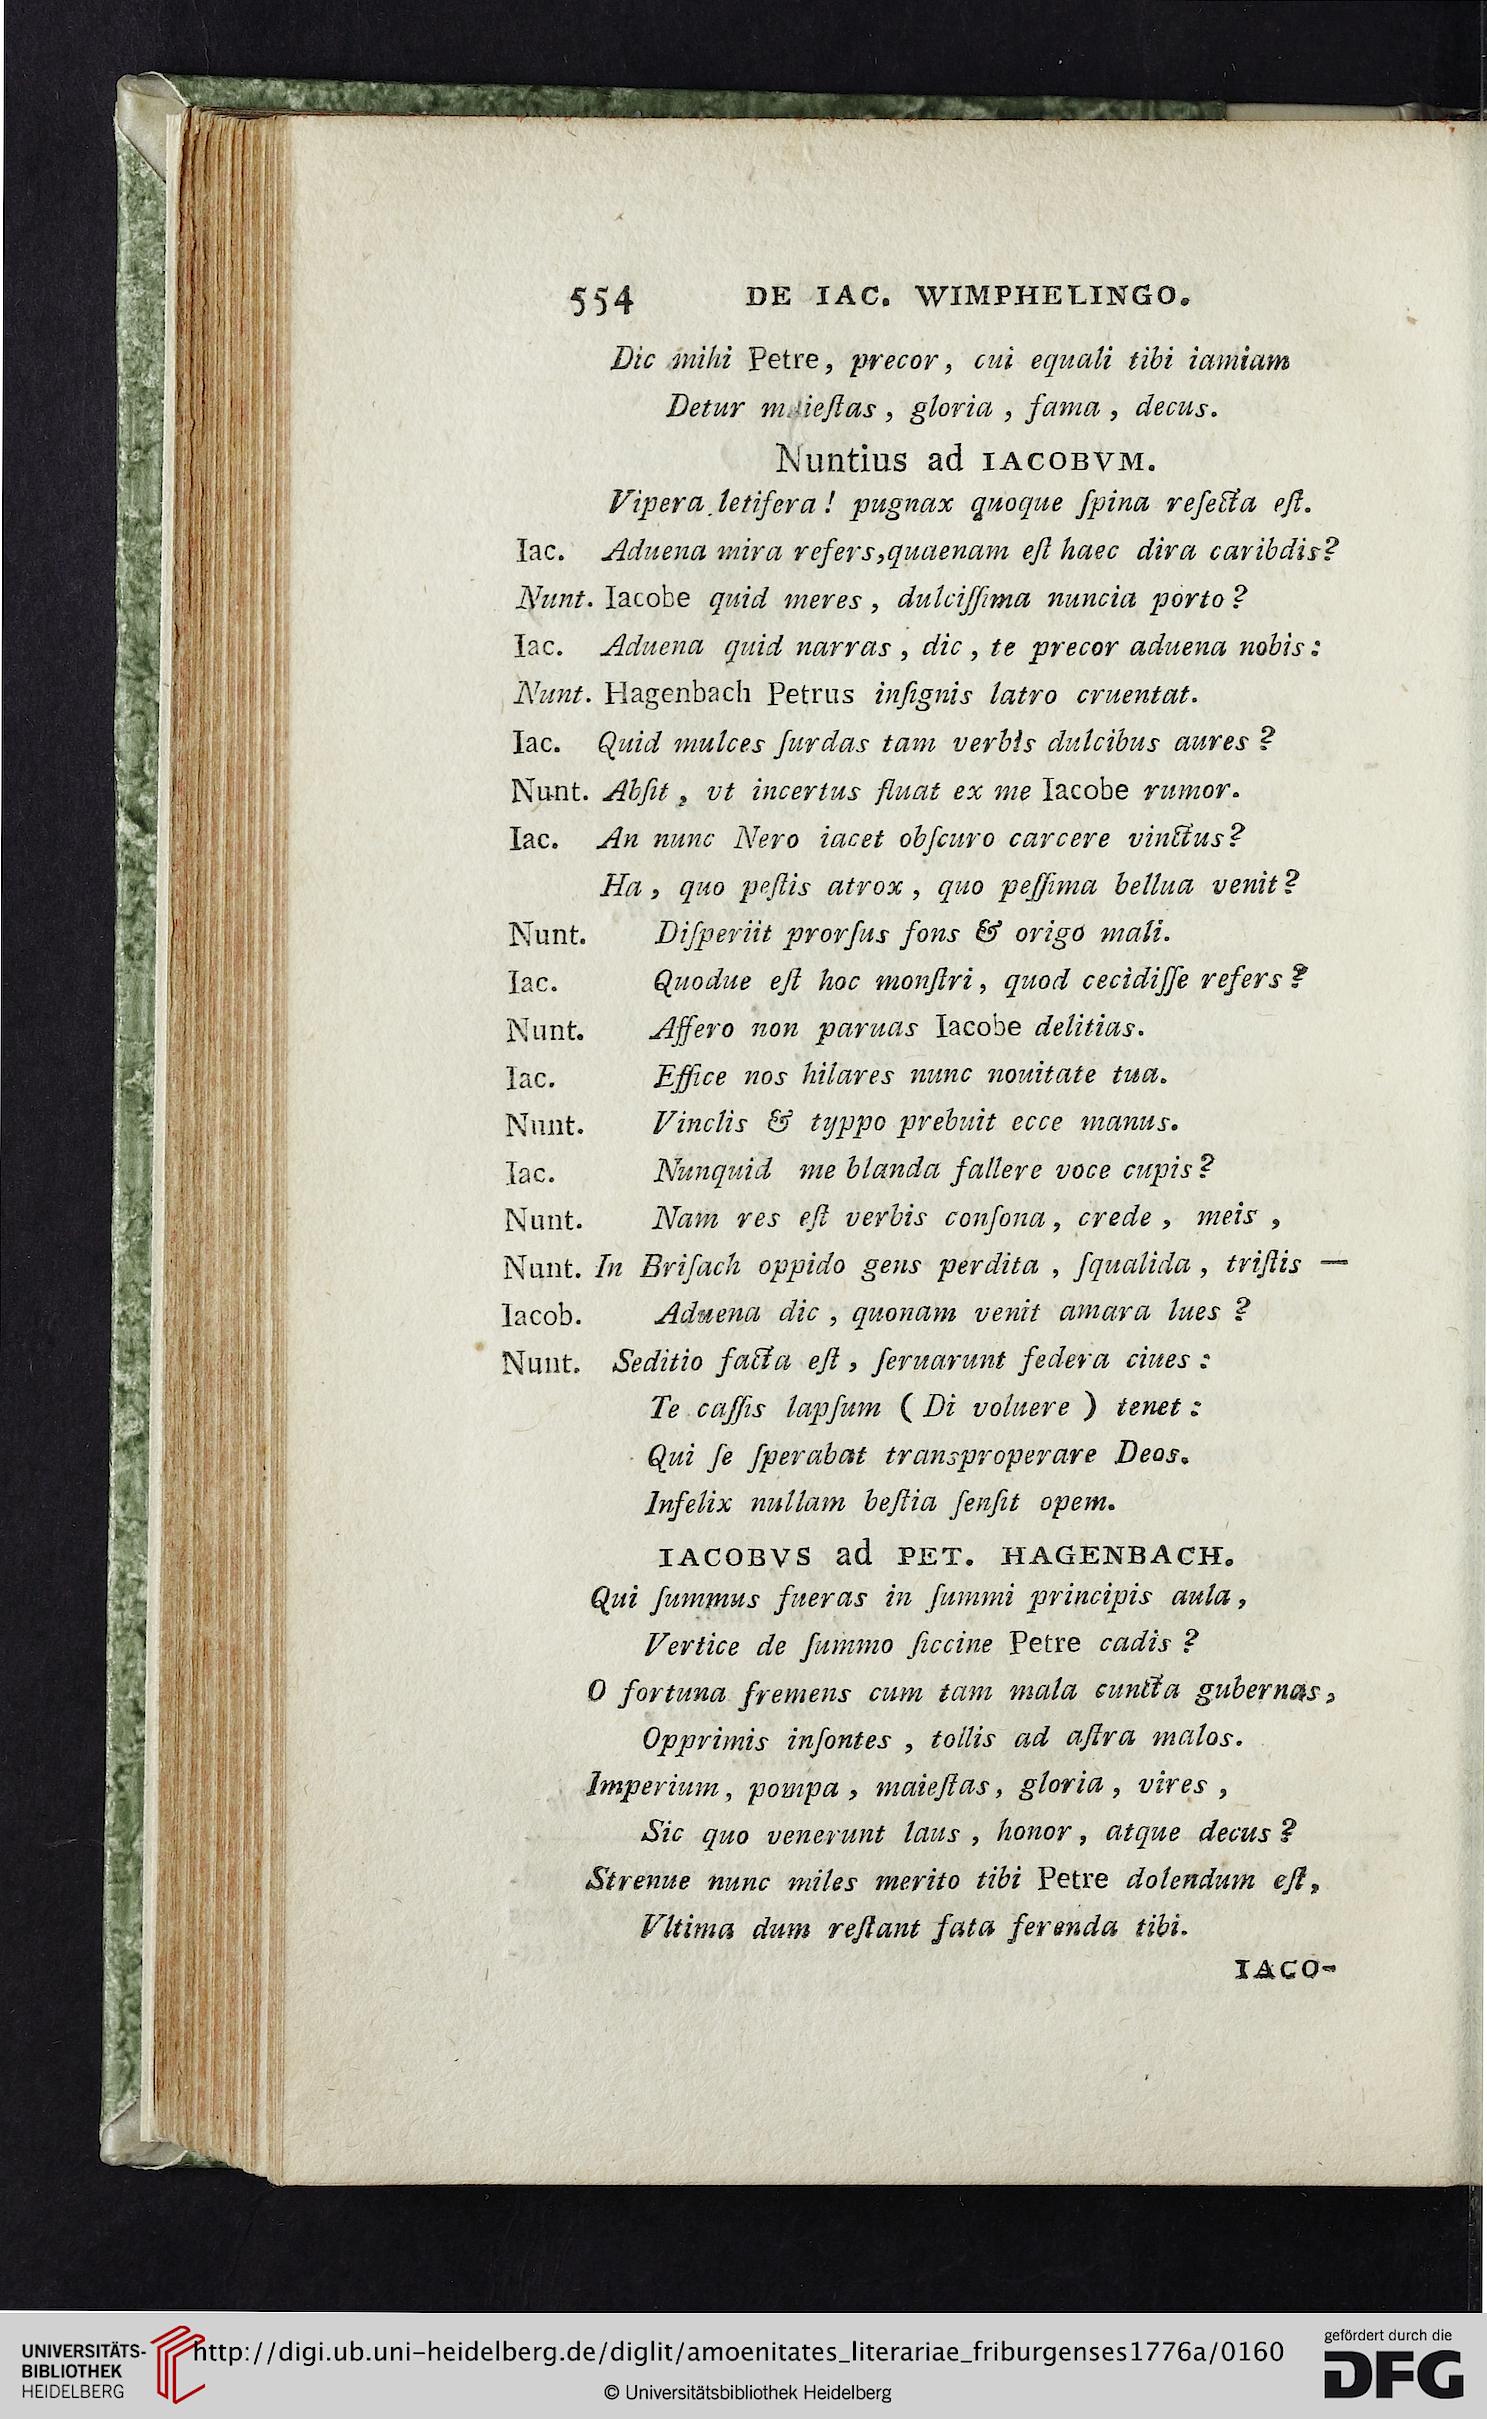 554 DE IAC. WIMPHELINGO.
Dic mihi Petre, precor, cui equali tibi iamiam
Detur maieſtas, gloria, fama, decus.
Nuntius ad IACOBVM.
Vipera letifera! pugnax quoque ſpina reſecta eſt.
Iac. Aduena mira refers, quaenam eſt haec dira caribdis?
Nunt. Iacobe quid meres, dulciſſima nuncia porto?
Iac. Aduena quid narras, dic, te precor aduena nobis:
Nunt. Hagenbach Petrus inſignis latro cruentat.
Iac. Quid mulces ſurdas tam verbis dulcibus aures?
Nunt. Abſit, vt incertus fluat ex me Iacobe rumor.
Iac. An nunc Nero iacet obſcuro carcere vinctus?
Ha, quo peſtis atrox, quo peſſima bellua venit?
Nunt. Diſperiit prorſus fons & origo mali.
Iac. Quodue eſt hoc monſtri, quod cecidiſſe refers?
Nunt. Affero non paruas Iacobe delitias.
Iac. Effice nos hilares nunc nouitate tua.
Nunt. Vinclis & typpo prebuit ecce manus.
Iac. Nunquid me blanda fallere voce cupis?
Nunt. Nam res eſt verbis conſona, crede, meis,
Nunt. In Briſach oppido gens perdita, ſqualida, triſtis —
Iacob. Aduena dic, quonam venit amara lues?
Nunt. Seditio facta eſt, ſeruarunt federa ciues:
Te caſſis lapſum (Di voluere) tenet:
Qui ſe ſperabat transproperare Deos.
Infelix nullam beſtia ſenſit opem.
IACOBVS ad PET. HAGENBACH.
Qui ſummus fueras in ſummi principis aula,
Vertice de ſummo ſiccine Petre cadis?
O fortuna fremens cum tam mala cuncta gubernas,
Opprimis inſontes, tollis ad aſtra malos.
Imperium, pompa, maieſtas, gloria, vires,
Sic quo venerunt laus, honor, atque decus?
Strenue nunc miles merito tibi Petre dolendum eſt,
Vltima dum reſtant fata ferenda tibi.
IACO-
UNIVERSITÄTS-
BIBLIOTHEK
HEIDELBERG
http://digi.ub.uni-heidelberg.de/diglit/amoenitates_literariae_friburgenses1776a/0160
© Universitätsbibliothek Heidelberg
gefördert durch die
DFG